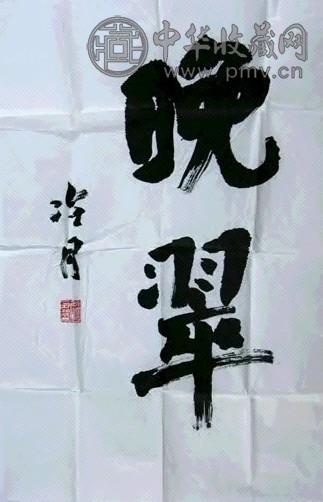 中华收藏网
www.pmv.cn
晚翠
月